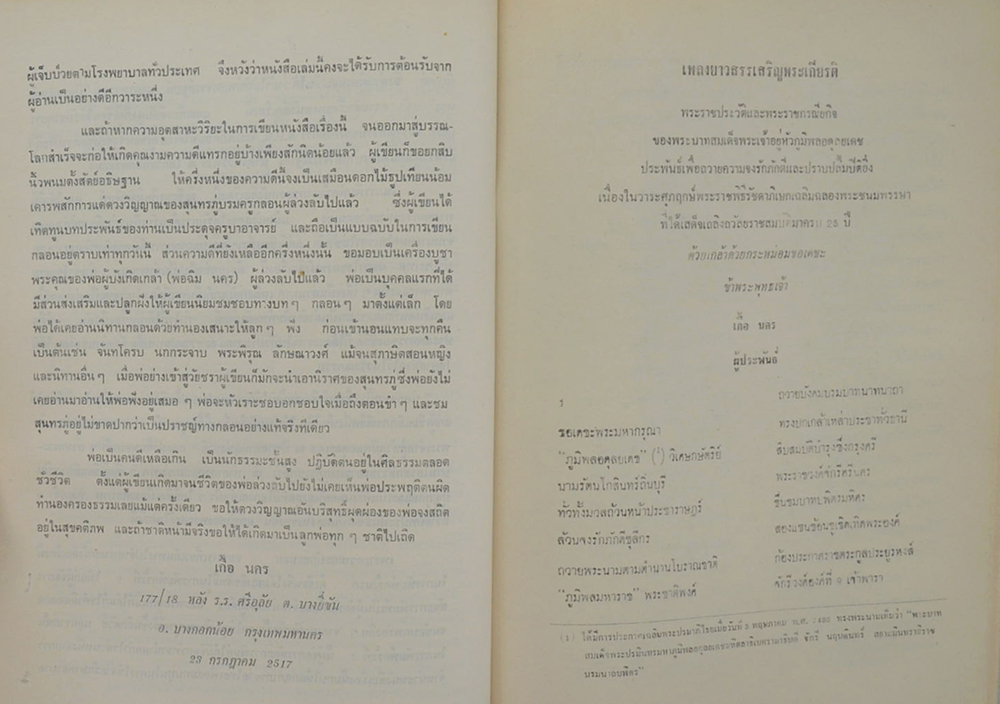 ผู้เจ็บป่วยตามโรงพยาบาลทั่วประเทศ จึงหวังว่าหนังสือเล่มนี้คงจะได้รับการต้อนรับจาก
ผู้อ่านเป็นอย่างดีอีกวาระหนึ่ง
และถ้าหากความอุตสาหะวิริยะในการเขียนหนังสือเรื่องนี้ จนออกมาสู่บรรณ-
โลกสำเร็จจะก่อให้เกิดคุณงามความดีแทรกอยู่บ้างเพียงสักนิดน้อยแล้ว ผู้เขียนก็ขอยกสิบ
นิ้วพนมตั้งสัตย์อธิษฐาน ให้ครึ่งหนึ่งของความดีนี้จงเป็นเสมือนดอกไม้ธูปเทียนน้อม
เคารพสักการแด่ดวงวิญญาณของสุนทรภู่บรมครูกลอนผู้ล่วงลับไปแล้ว ซึ่งผู้เขียนได้
เทิดทูนบทประพันธ์ของท่านเป็นประดุจครูบาอาจารย์ และถือเป็นแบบฉบับในการเขียน
กลอนอยู่ตราบเท่าทุกวันนี้ ส่วนความดีที่ยังเหลืออีกครึ่งหนึ่งนั้น ขอมอบเป็นเครื่องบูชา
พระคุณของพ่อผู้บังเกิดเกล้า (พ่อฉิม นคร) ผู้ล่วงลับไปแล้ว พ่อเป็นบุคคลแรกที่ได้
มีส่วนส่งเสริมและปลูกฝังให้ผู้เขียนนิยมชมชอบทางบท ๆ กลอน ๆ มาตั้งแต่เล็ก โดย
พ่อได้เคยอ่านนิทานกลอนด้วยทำนองเสนาะให้ลูก ๆ ฟัง ก่อนเข้านอนแทบจะทุกคืน
เป็นต้นเช่น จันทโครบ นกกระจาบ พระพิรุณ ลักษณาวงศ์ แม้จนสุภาษิตสอนหญิง
และนิทานอื่น ๆ เมื่อพ่อย่างเข้าสู่วัยชราผู้เขียนก็มักจะนำเอานิราศของสุนทรภู่ซึ่งพ่อยังไม่
เคยอ่านมาอ่านให้พ่อฟังอยู่เสมอ ๆ พ่อจะหัวเราะชอบอกชอบใจเมื่อถึงตอนขำ ๆ และชม
สุนทรภู่อยู่ไม่ขาดปากว่าเป็นปราชญ์ทางกลอนอย่างแท้จริงทีเดียว
พ่อเป็นคนดีเหลือเกิน เป็นนักธรรมะชั้นสูง ปฏิบัติตนอยู่ในศีลธรรมตลอด
ชั่วชีวิต ตั้งแต่ผู้เขียนเกิดมาจนชีวิตของพ่อล่วงลับไปยังไม่เคยเห็นพ่อประพฤติตนผิด
ทำนองครองธรรมเลยแม้แต่ครั้งเดียว ขอให้ดวงวิญญาณอันบริสุทธิ์ผุดผ่องของพ่อจงสถิต
อยู่ในสุขคติภพ และถ้าชาติหน้ามีจริงขอให้ได้เกิดมาเป็นลูกพ่อทุก ๆ ชาติไปเถิด
เกื้อ นคร
177/18 หลัง ร.ร. ศรีอุลัย ต. บางยี่ขัน
อ. บางกอกน้อย กรุงเทพมหานคร
23 กรกฎาคม 2517
เพลงยาวสรรเสริญพระเกียรติ
พระราชประวัติและพระราชกรณียกิจ
ของพระบาทสมเด็จพระเจ้าอยู่หัวภูมิพลอดุลยเดช
ประพันธ์เพื่อถวายความจงรักภักดีและปราบปลื้มปีติยิ่ง
เนื่องในวาระศุภฤกษ์พระราชพิธีรัชดาภิเษกเฉลิมฉลองพระชนมพรรษา
ที่ได้เสด็จเถลิงถวัลยราชสมบัติมาครบ 25 ปี
ด้วยเกล้าด้วยกระหม่อมขอเดชะ
ข้าพระพุทธเจ้า
เกื้อ นคร
ผู้ประพันธ์
ถวายบังคมบรมบาทนาทนาถา
ขอเดชะพระมหากรุณา
ทรงปกเกล้าเหล่าประชาทั่วธานี
"ภูมิพลอดุลยเดช" (¹) วิเศษกษัตริย์
สืบสมบัติบำรุงซึ่งกรุงศรี
บรมรัตนโกสินทร์ถิ่นบุรี
พระราชวงศ์จักรีศรีนคร
ทั่วทั้งมวลถ้วนหน้าประชาราษฎร์
ชื่นชมบาทบพิตรมหิศร
ล้วนจงรักภักดีชุลีกร
ฉลองแซ่ซ้องชูเชิดเทิดพระองค์
ถวายพระนามตามตำนานโบราณชาติ
ก้องประกาศราชตระกูลประยูรหงส์
"ภูมิพลมหาราช" พระชาติพงศ์
จักรีวงศ์องค์ที่ ๑ เจ้าพารา
(1) ได้มีการประกาศเฉลิมพระปรมาภิไธยเมื่อวันที่ 5 พฤษภาคม พ.ศ. 2493 ทรงพระนามเดิมว่า "พระบาท
สมเด็จพระปรมินทรมหาภูมิพลอดุลยเดชมหิตลาธิเบศรามาธิบดี จักรี นฤบดินทร์ สยามินทราธิราช
บรมนาถบพิตร"